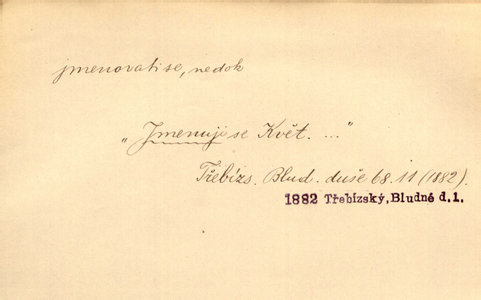 jmenovati se, nedok
„Jmenuji se Květ. ..."
Třebízs. Blud. duše 68.11 (1882).
1882 Třebízský, Bludné d.1.